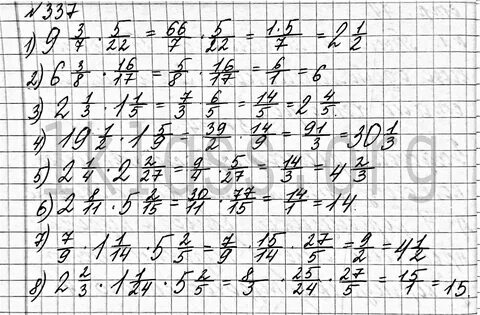 №337
1) 9 3/7 · 5/22 = 66/7 · 5/22 = 1·5/7 = 2 1/2
2) 6 3/8 · 16/17 = 5/8 · 16/17 = 6/1 = 6
3) 2 1/3 · 1 1/5 = 7/3 · 6/5 = 14/5 = 2 4/5
4) 19 1/2 · 1 5/9 = 39/2 · 14/9 = 91/3 = 30 1/3
5) 2 1/4 · 2 2/27 = 9/4 · 5/27 = 14/3 = 4 2/3
6) 2 8/11 · 5 2/15 = 30/11 · 77/15 = 14/1 = 14.
7) 7/9 · 1 1/14 · 5 2/5 = 7/9 · 15/14 · 27/5 = 9/2 = 4 1/2
8) 2 2/3 · 1 1/24 · 5 2/5 = 8/3 · 25/24 · 27/5 = 15/1 = 15.